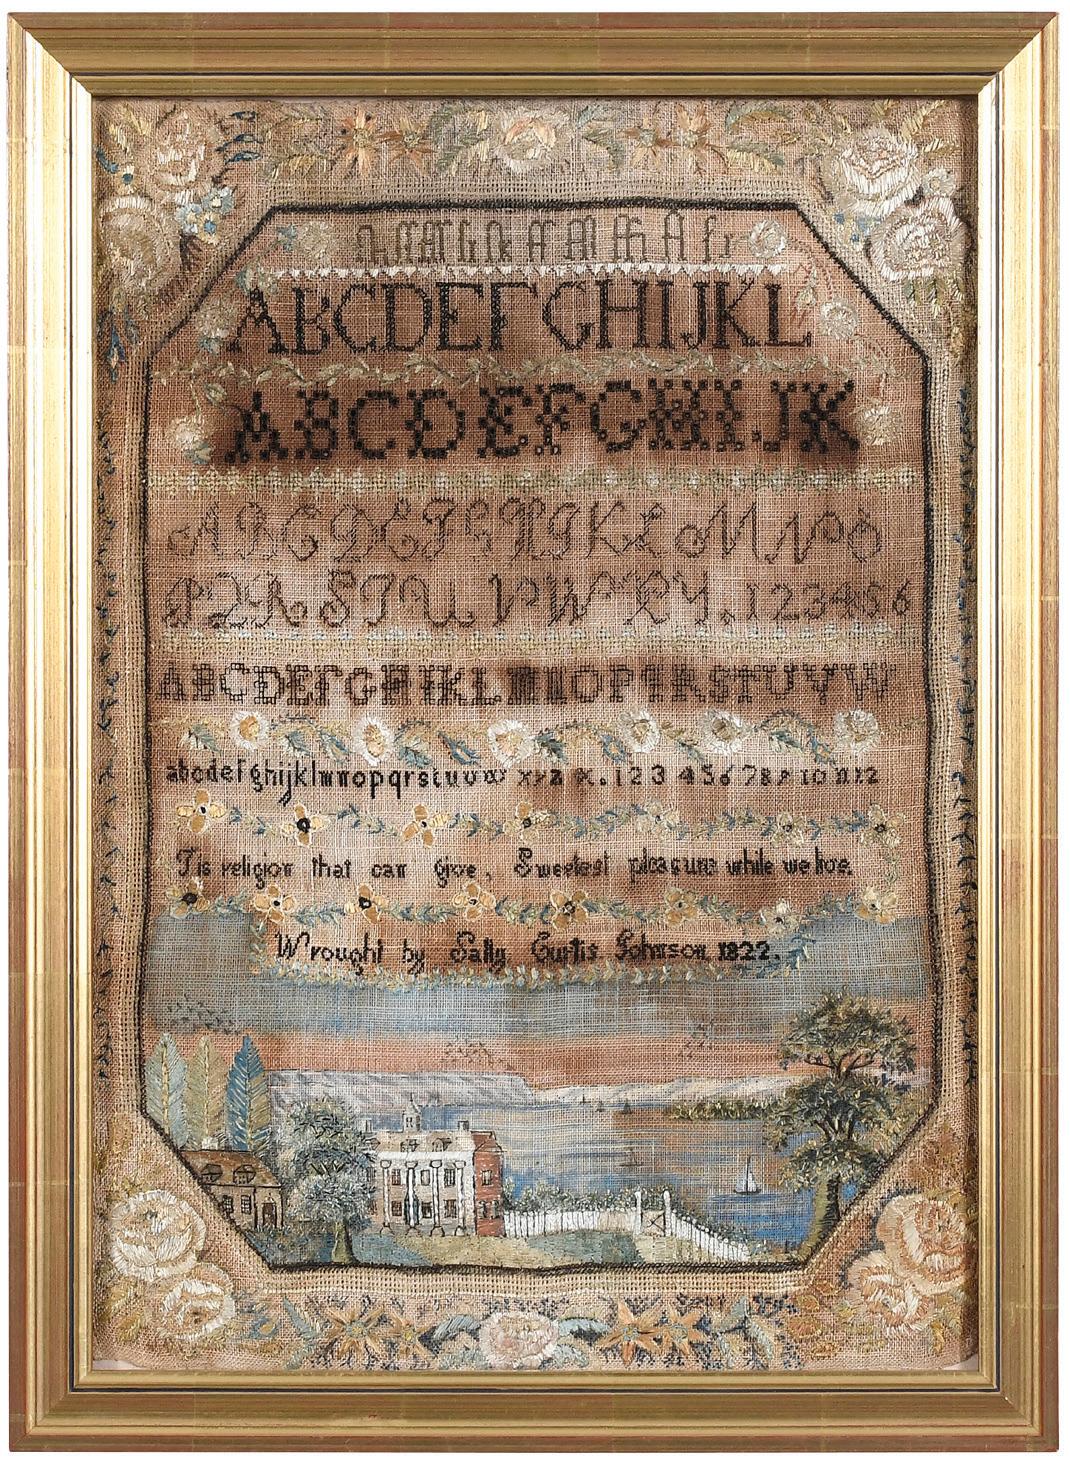 ABCDEFGHIJKL
ABCDEFGHIJK
ABCDEFGHIJKLMNO
PQRSTUVWXY.123456
ABCDEFGHIJKLMNOPQRSTUVW
abcdefghijklmnopqrstuvw xyz &.123456789 10 11 12
Tis religion that can give, Sweetest pleasure while we live.
Wrought by Sally Curtis Johnson 1822.